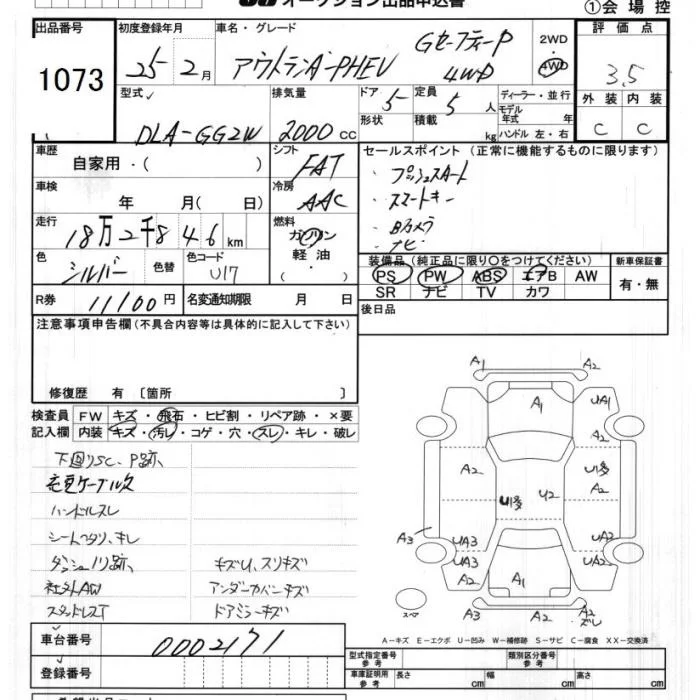 オークション出品申込書
①会場控
出品番号 初度登録年月 車名・グレード 評価点
1073 25 2月 アウトランダーPHEV GセーフティーP 4WD 2WD・4WD 3.5
型式 排気量 ドア 5 定員 5人 ディーラー・並行
モデル年式 年
外装 内装
DLA-GG2W 2000cc 形状 積載 kg ハンドル 左・右 C C
車歴 シフト セールスポイント (正常に機能するものに限ります)
自家用・( ) FAT ・プッシュスタート
車検 冷房 ・スマートキー
年 月( 日) AAC ・Bカメラ
走行 燃料 ・ナビ
18万2千846km ガソリン・軽油・( )
色 色替 色コード 装備品(純正品に限り〇をつけてください) 新車保証書
シルバー U17 PS PW ABS エアB AW 有・無
SR ナビ TV カワ
R券 11100円 名変通知期限 月 日 後日品
注意事項申告欄(不具合内容等は具体的に記入して下さい)
修復歴 有〔箇所 〕
検査員記入欄 FW キズ・飛石・ヒビ割・リペア跡・×要
内装 キズ・汚レ・コゲ・穴・スレ・キレ・破レ
下回りSC、P跡、
充電ケーブル欠
ハンドルスレ
シートヘタリ、キレ
ダッシュノリ跡、 キズU、スリキズ
社外AW アンダーカバーキズ
スタッドレスT ドアミラーキズ
A1 A2
A1 UA1
A2 U1多 U2 U1多 A2
A3 UA3 UA2
UA3 A1 UA2
スペア A3 A2 ズレ
A-キズ E-エクボ U-凹み W-補修跡 S-サビ C-腐食 XX-交換済
車台番号 0002171
登録番号
型式指定番号 参考 類別区分番号 参考
車庫証明用 参考 長さ cm 幅 cm 高さ cm